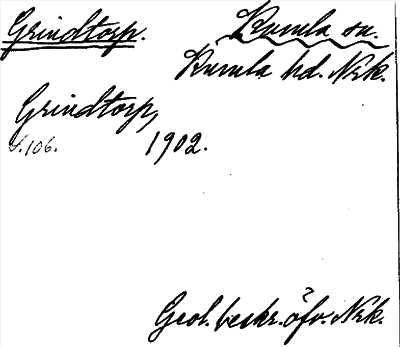 Grindtorp. Kumla sn.
Kumla hd. Nrk.
Grindtorp,
S. 106. 1902.
Geol. beskr. öfv. Nrk.